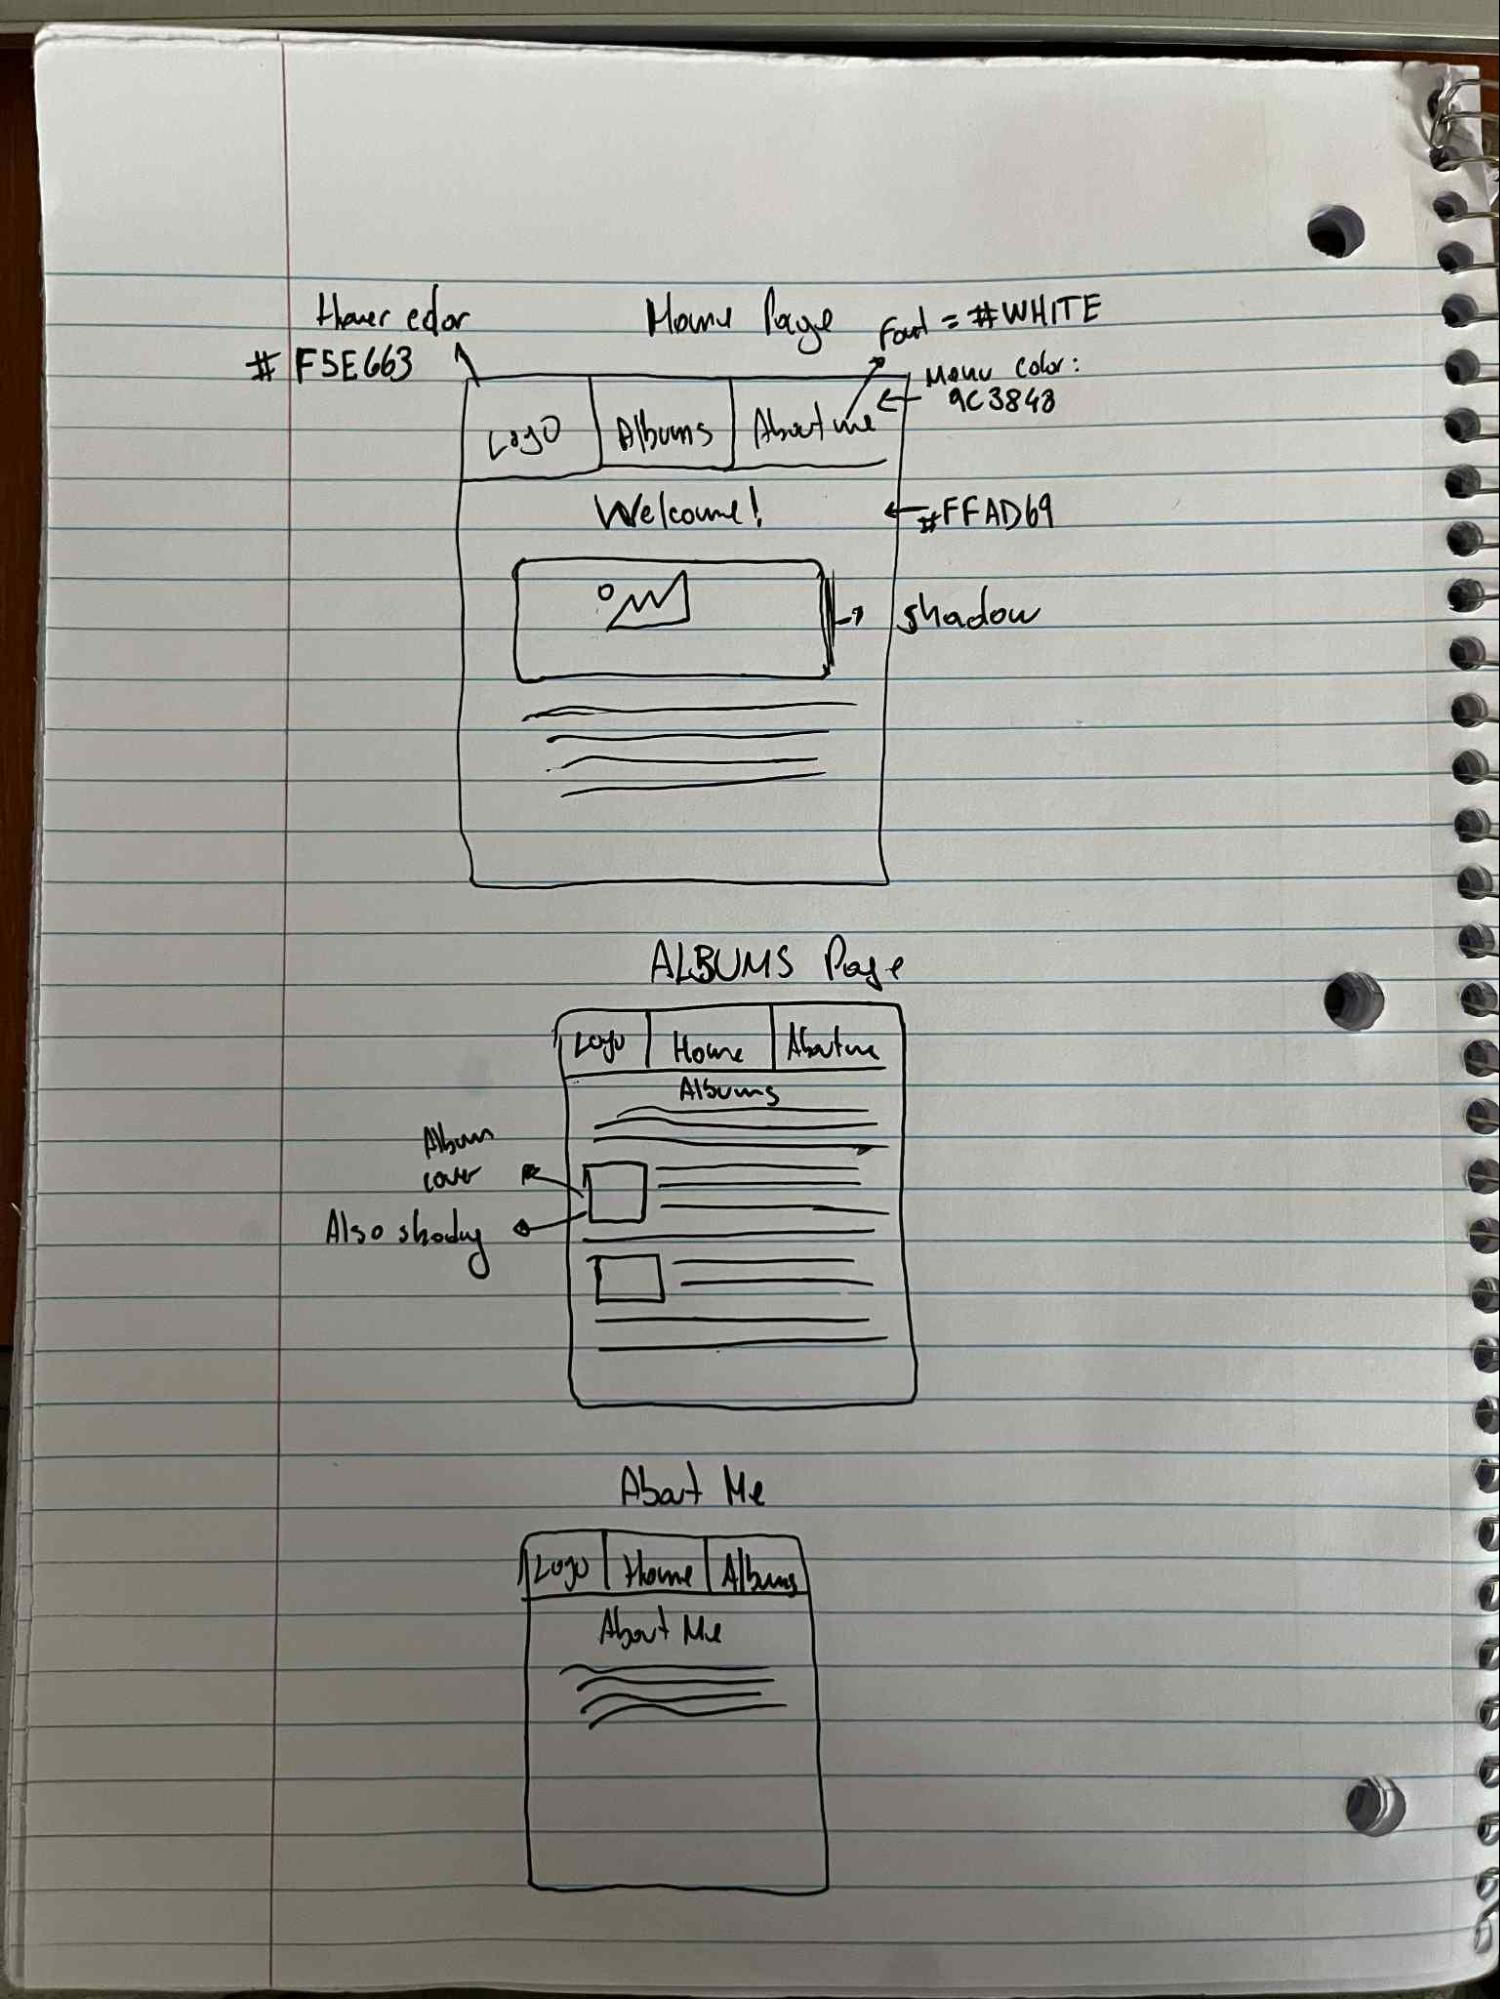 Home Page
Hover color
# F5E663
Font = #WHITE
Menu Color:
9C3848
Logo
Albums
About me
Welcome!
#FFAD69
shadow
ALBUMS Page
Logo
Home
About me
Albums
Album
cover
Also shadow
About Me
Logo
Home
Albums
About Me